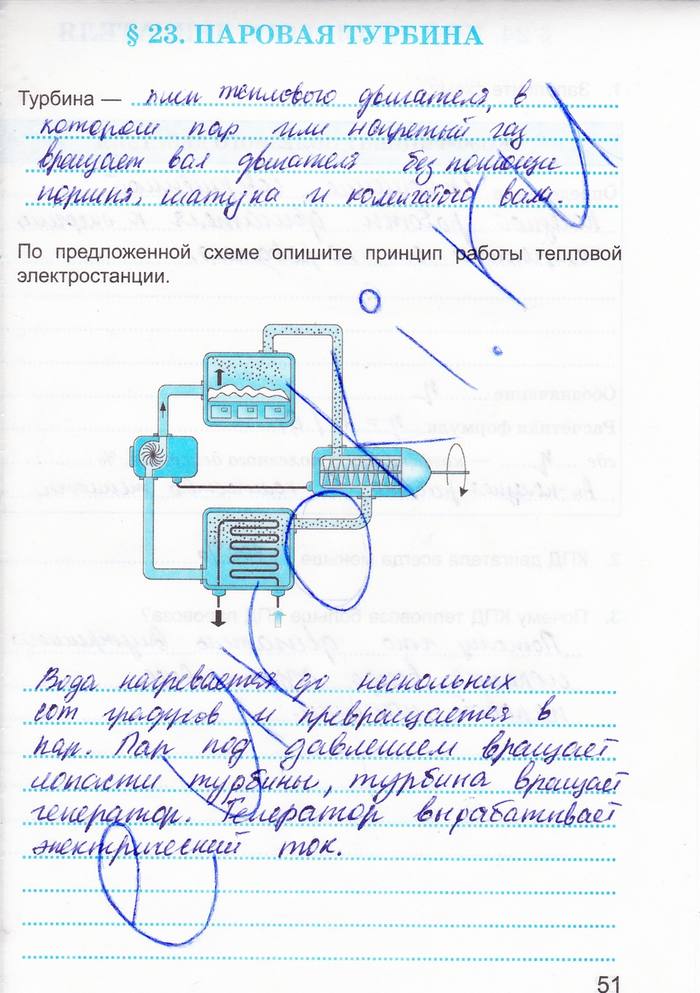 § 23. ПАРОВАЯ ТУРБИНА
Турбина — тип теплового двигателя, в
котором пар или нагретый газ
вращает вал двигателя без помощи
поршня, шатуна и коленчатого вала.
По предложенной схеме опишите принцип работы тепловой
электростанции.
Вода нагревается до нескольких
сот градусов и превращается в
пар. Пар под давлением вращает
лопасти турбины, турбина вращает
генератор. Генератор вырабатывает
электрический ток.
51